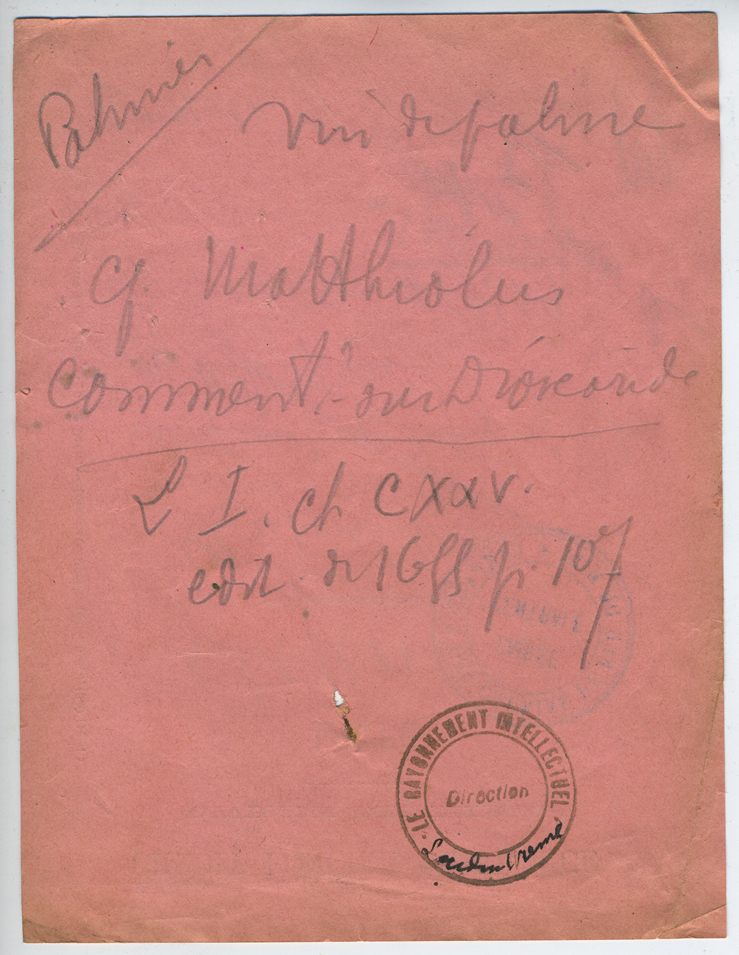 Palmier
vin de palme
cf. Matthiolus
comment. sur Dioscoride
L I. ch CXXV.
edit de 1655 p. 107
LE RAYONNEMENT INTELLECTUEL
Direction
Loudun Vienne